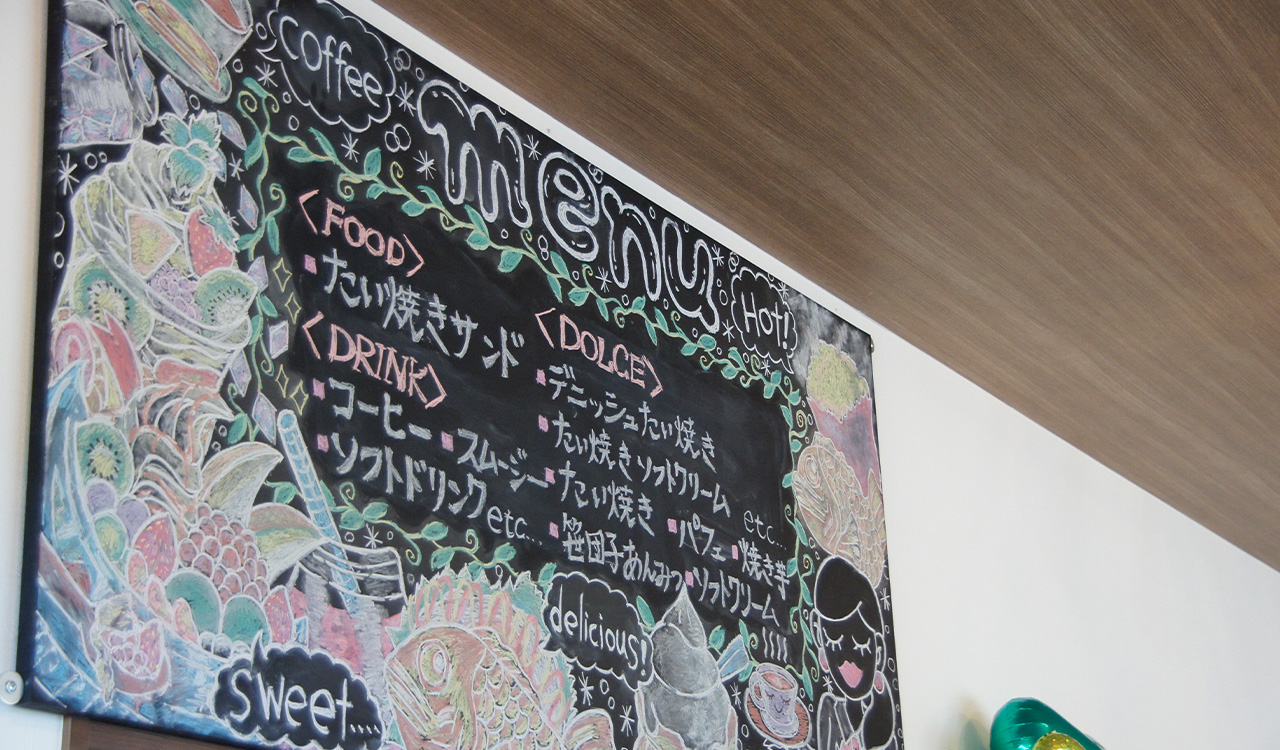 coffee
menu
Hot!
<FOOD>
・たい焼きサンド
<DRINK>
・コーヒー ・スムージー
・ソフトドリンク etc...
<DOLCE>
・デニッシュたい焼き
・たい焼きソフトクリーム
・たい焼き ・パフェ ・焼き芋 etc...
・笹団子あんみつ ・ソフトクリーム
delicious!
sweet....